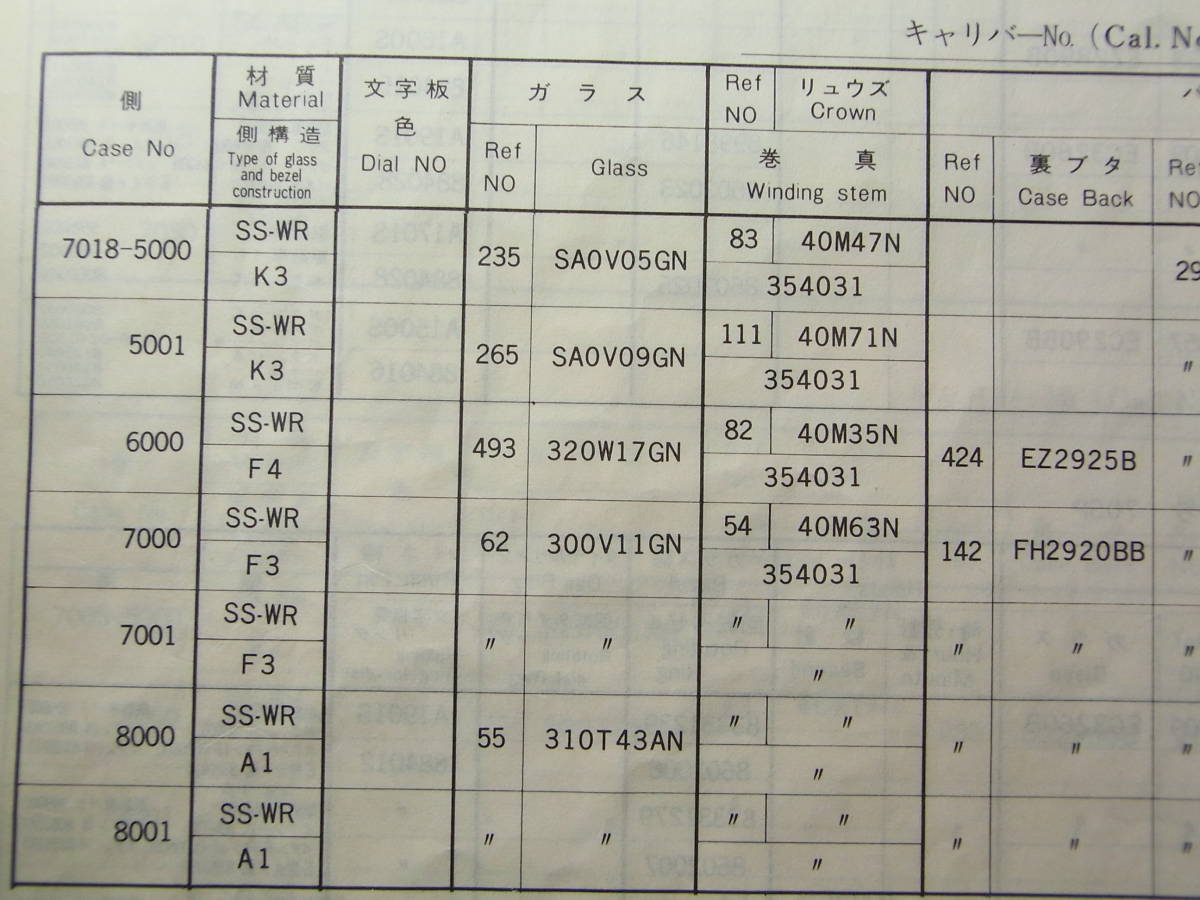 キャリバーNo. (Cal. No
側
Case No
材質
Material
側構造
Type of glass
and bezel
construction
文字板
色
Dial NO
ガラス
Ref
NO
Glass
Ref
NO
リュウズ
Crown
巻真
Winding stem
Ref
NO
裏ブタ
Case Back
Ref
NO
7018-5000 SS-WR K3 235 SA0V05GN 83 40M47N 354031 29
5001 SS-WR K3 265 SA0V09GN 111 40M71N 354031 〃
6000 SS-WR F4 493 320W17GN 82 40M35N 354031 424 EZ2925B 〃
7000 SS-WR F3 62 300V11GN 54 40M63N 354031 142 FH2920BB 〃
7001 SS-WR F3 〃 〃 〃 〃 〃 〃 〃 〃
8000 SS-WR A1 55 310T43AN 〃 〃 〃 〃 〃 〃
8001 SS-WR A1 〃 〃 〃 〃 〃 〃 〃 〃